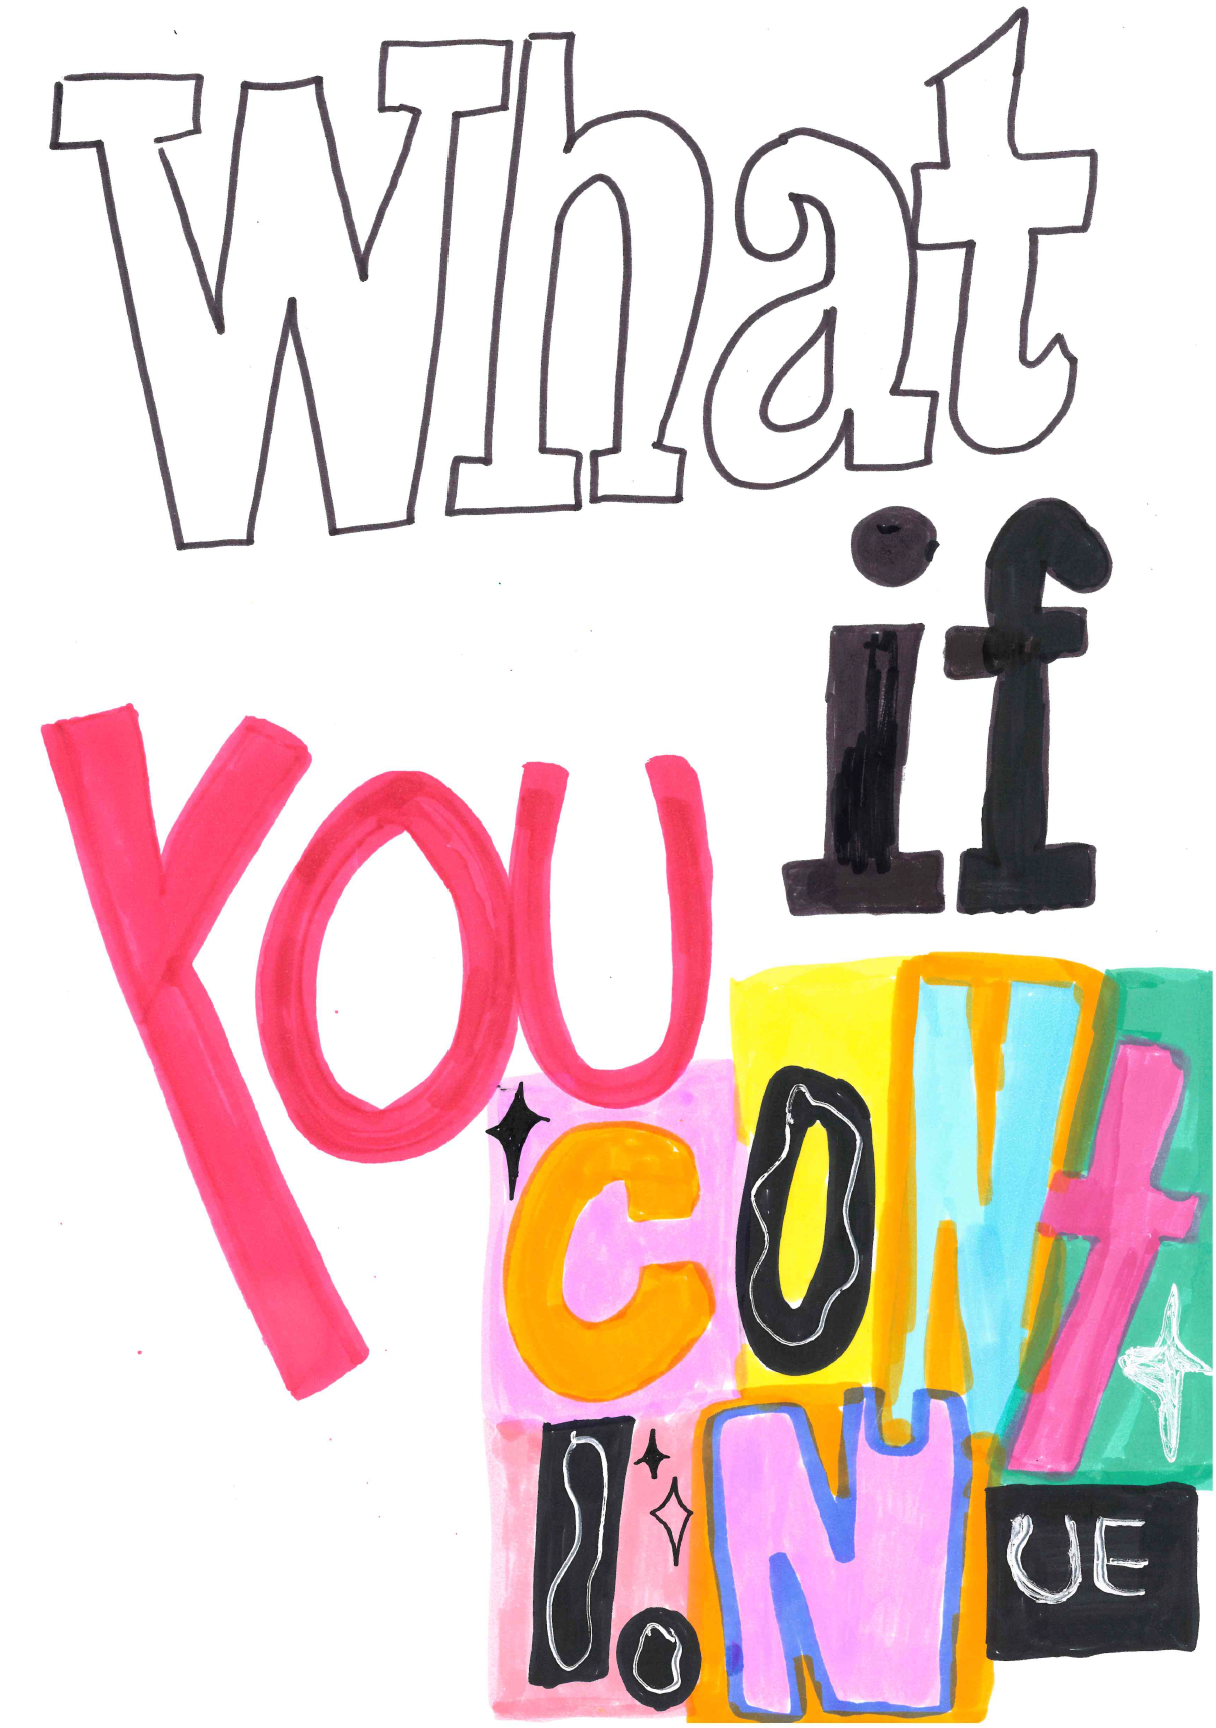 What
if
YOU
CONt
IN
UE